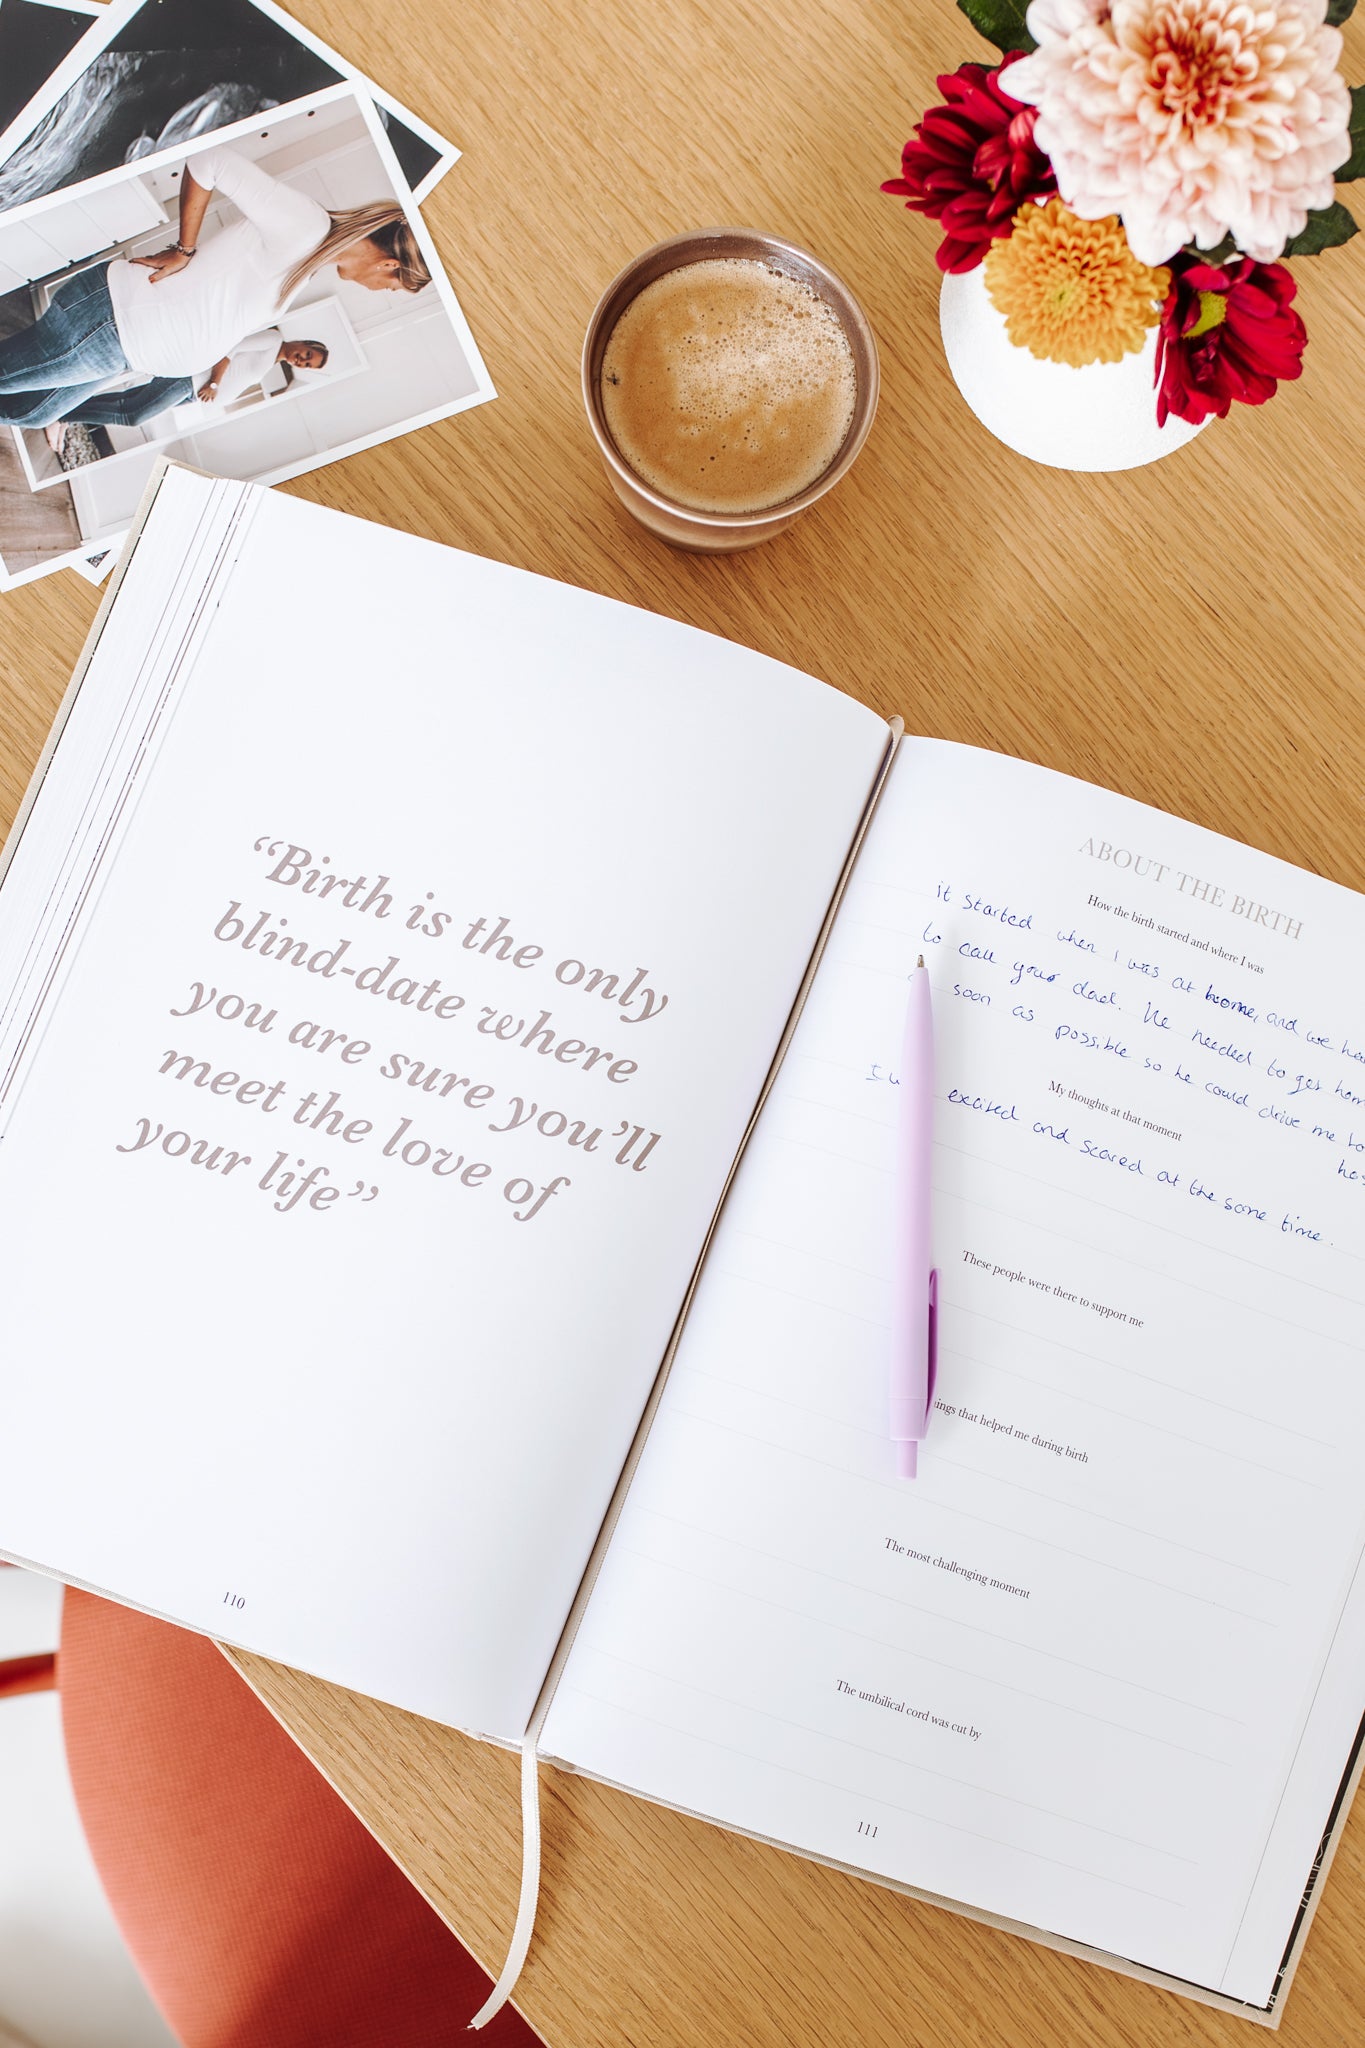 “Birth is the only
blind-date where
you are sure you’ll
meet the love of
your life”
110
ABOUT THE BIRTH
How the birth started and where I was
it started when I was at home, and we
to call your dad. He needed to get
soon as possible so he could drive me
My thoughts at that moment
excited and scared at the same time.
These people were there to support me
that helped me during birth
The most challenging moment
The umbilical cord was cut by
111